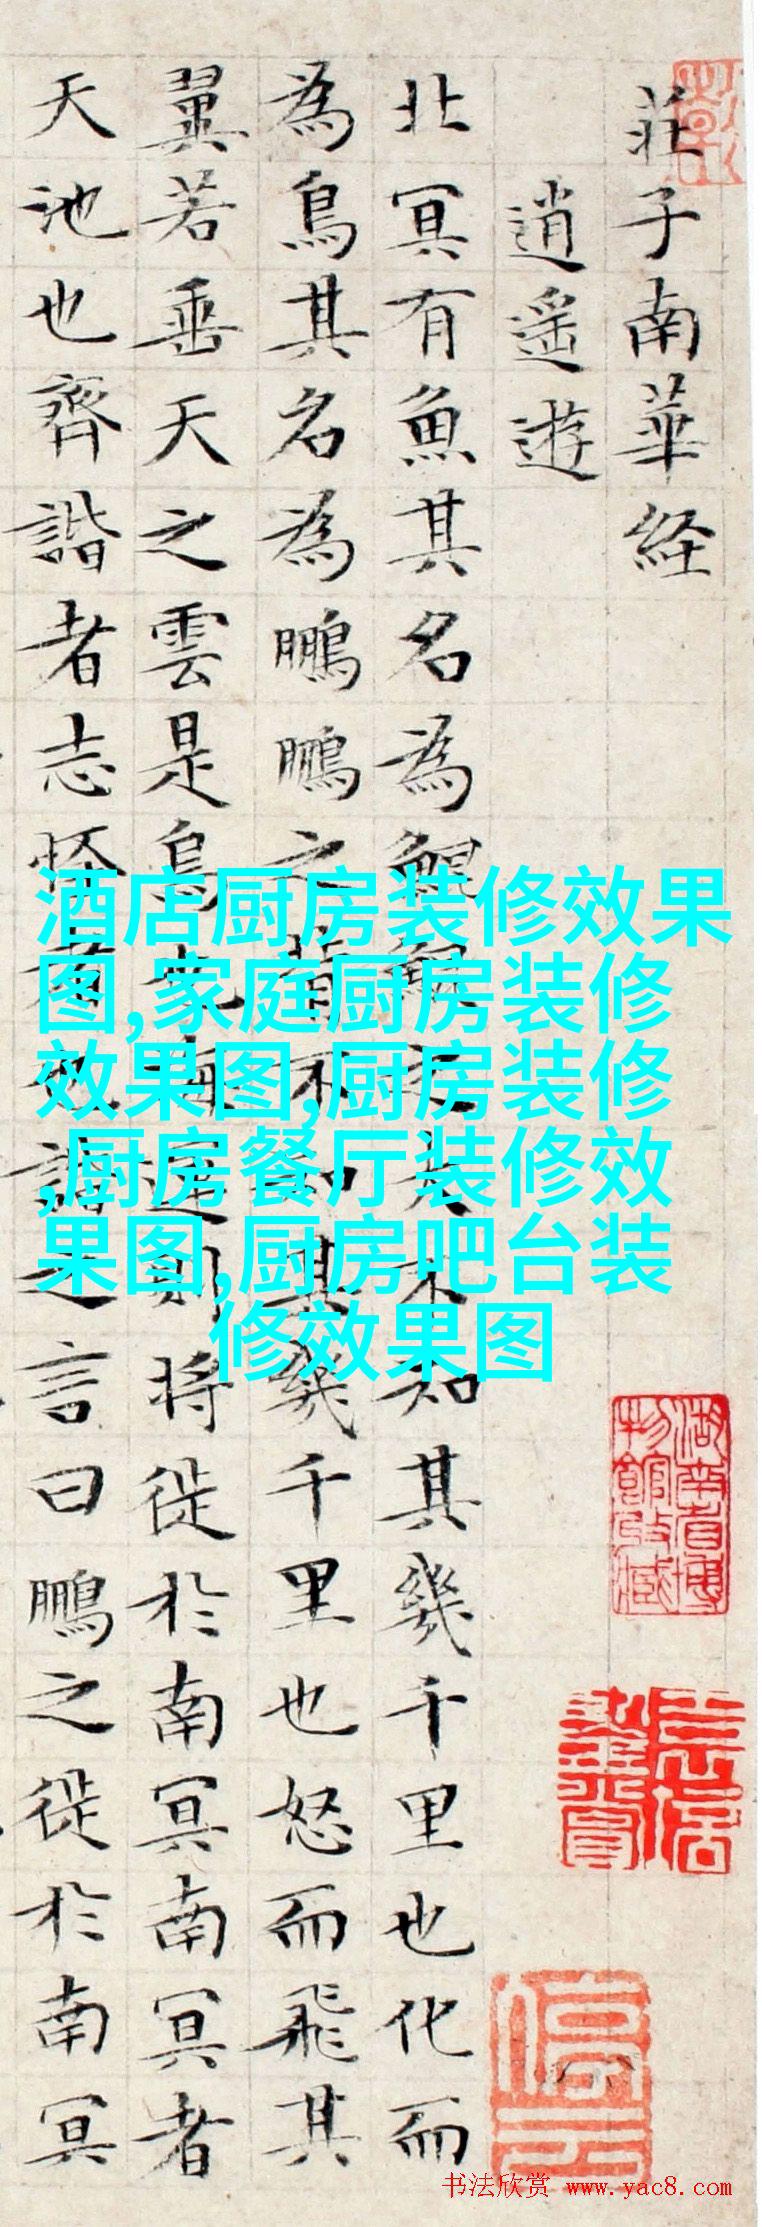 莊子南華経
逍遥遊
北冥有魚其名為鯤鯤之大不知其幾千里也化而
為鳥其名為鵬鵬之背不知其幾千里也怒而飛其
翼若垂天之雲是鳥也海運則將徙於南冥南冥者
天池也齊諧者志怪者也諧之言曰鵬之徙於南冥
酒店厨房装修效果
图,家庭厨房装修
效果图,厨房装修
,厨房餐厅装修效
果图,厨房吧台装
修效果图
湖南省博
物館收藏
停云
书法欣赏 www.yac8.com